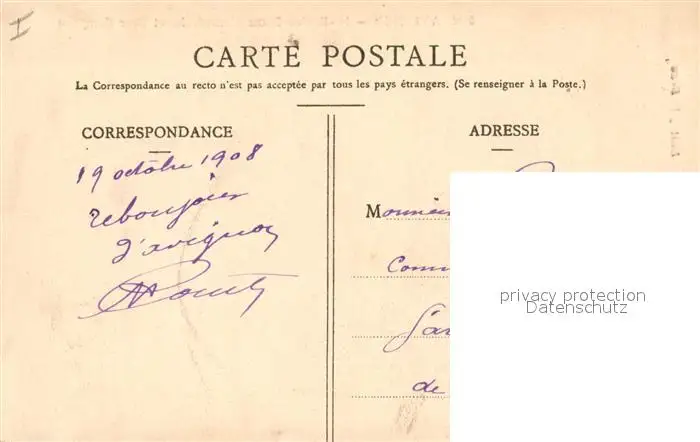 CARTE POSTALE
La Correspondance au recto n'est pas acceptée par tous les pays étrangers. (Se renseigner à la Poste.)
CORRESPONDANCE
ADRESSE
19 octobre 1908
rebonjour
d'avignon
M
de
privacy protection
Datenschutz